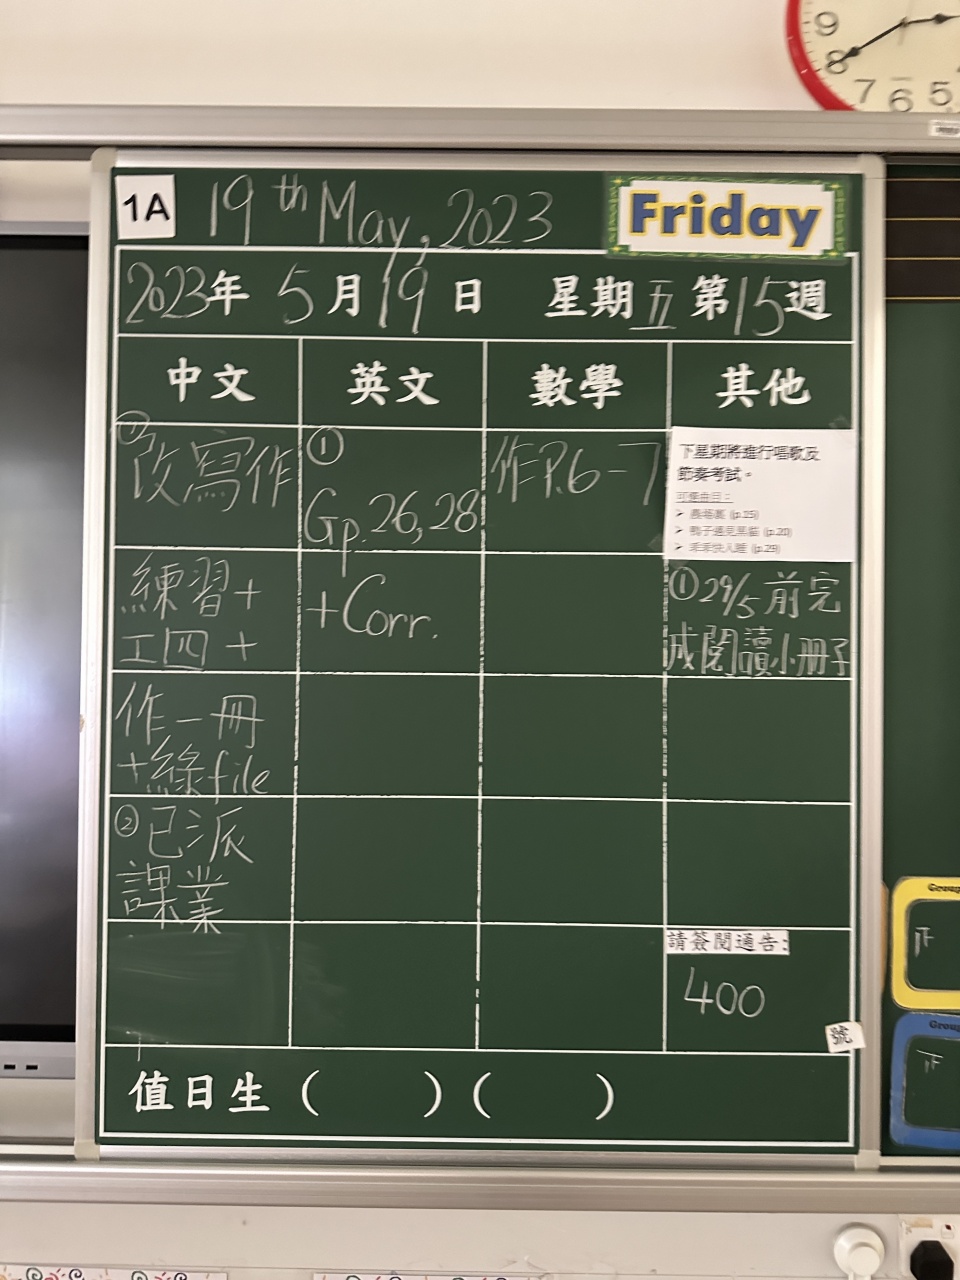 9
8
7
6
5
1A
19th May, 2023
Friday
2023年 5月19日 星期五 第15週
中文
英文
數學
其他
①
改寫作
練習+
工四 +
作一冊
+綠file
②已派
課業
①
Gp.26,28
+Corr.
作P.6-7
下星期將進行唱歌及
節奏考試。
可選曲目：
➤ 農場裏 (p.15)
➤ 鴨子遇見黑貓 (p.20)
➤ 乖乖快入睡 (p.29)
①29/5前完
成閱讀小冊子
請簽閱通告:
400
號
值日生 (    ) (    )
Group
正
Group
正